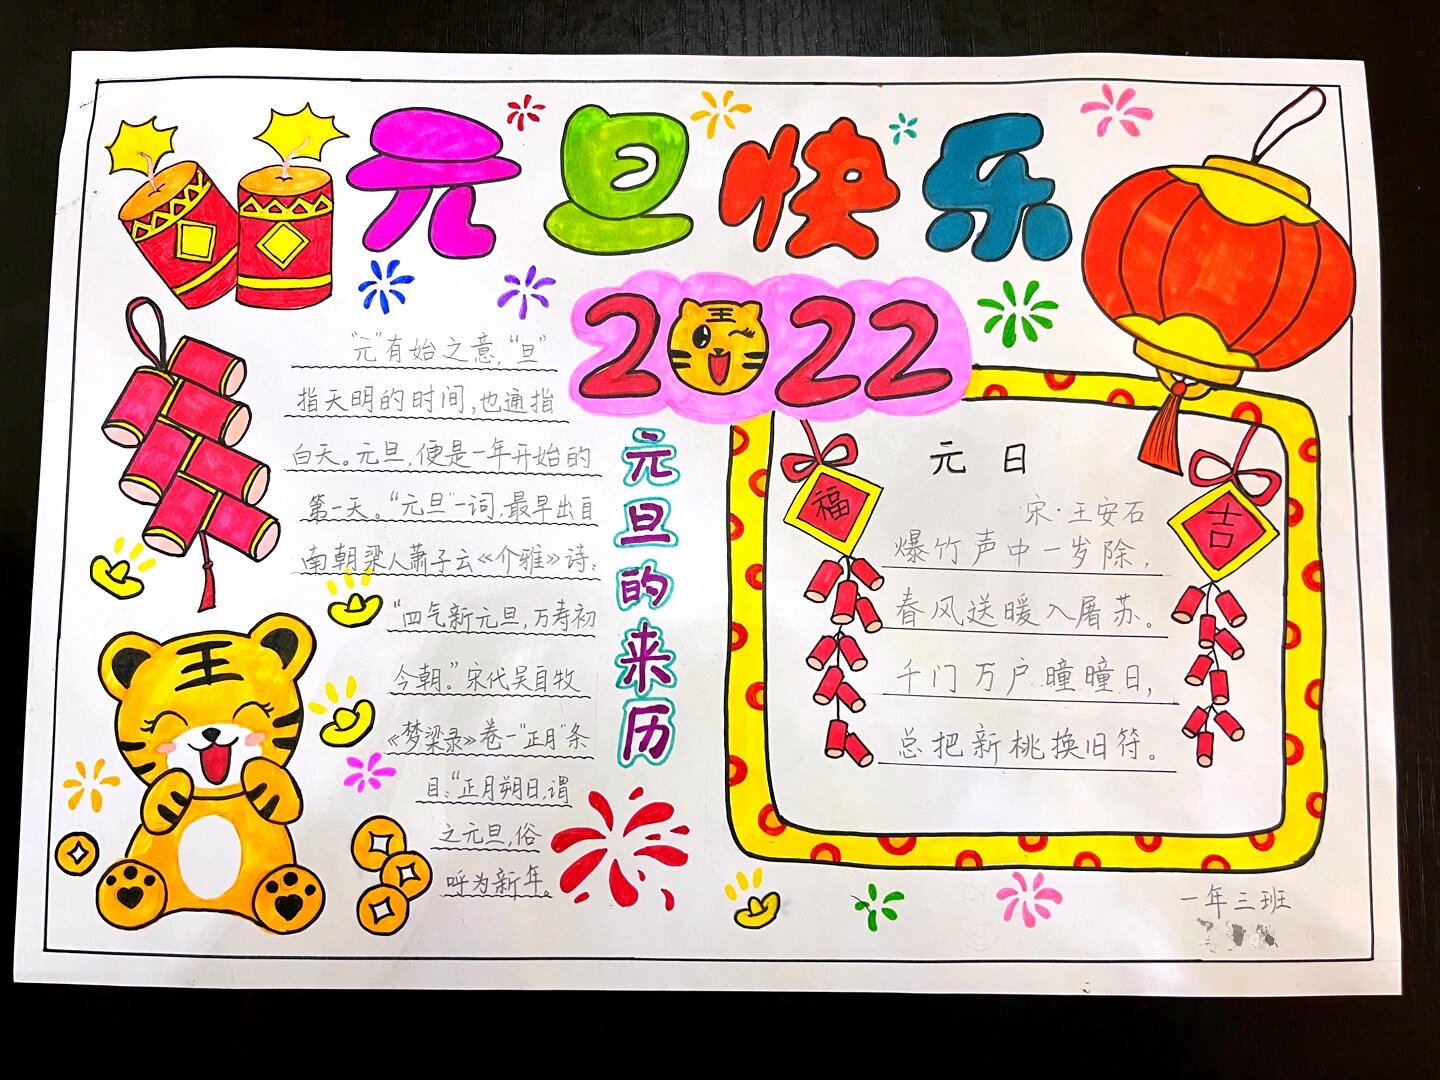 元旦快乐
2022
元旦的来历
"元"有始之意,"旦"
指天明的时间,也通指
白天。元旦,便是一年开始的
第一天。"元旦"一词,最早出自
南朝梁人萧子云《介雅》诗:
"四气新元旦,万寿初
今朝。"宋代吴自牧
《梦梁录》卷一"正月"条
目:"正月朔日,谓
之元旦,俗
呼为新年。
王
王
福
吉
元日
宋·王安石
爆竹声中一岁除,
春风送暖入屠苏。
千门万户瞳瞳日,
总把新桃换旧符。
一年三班